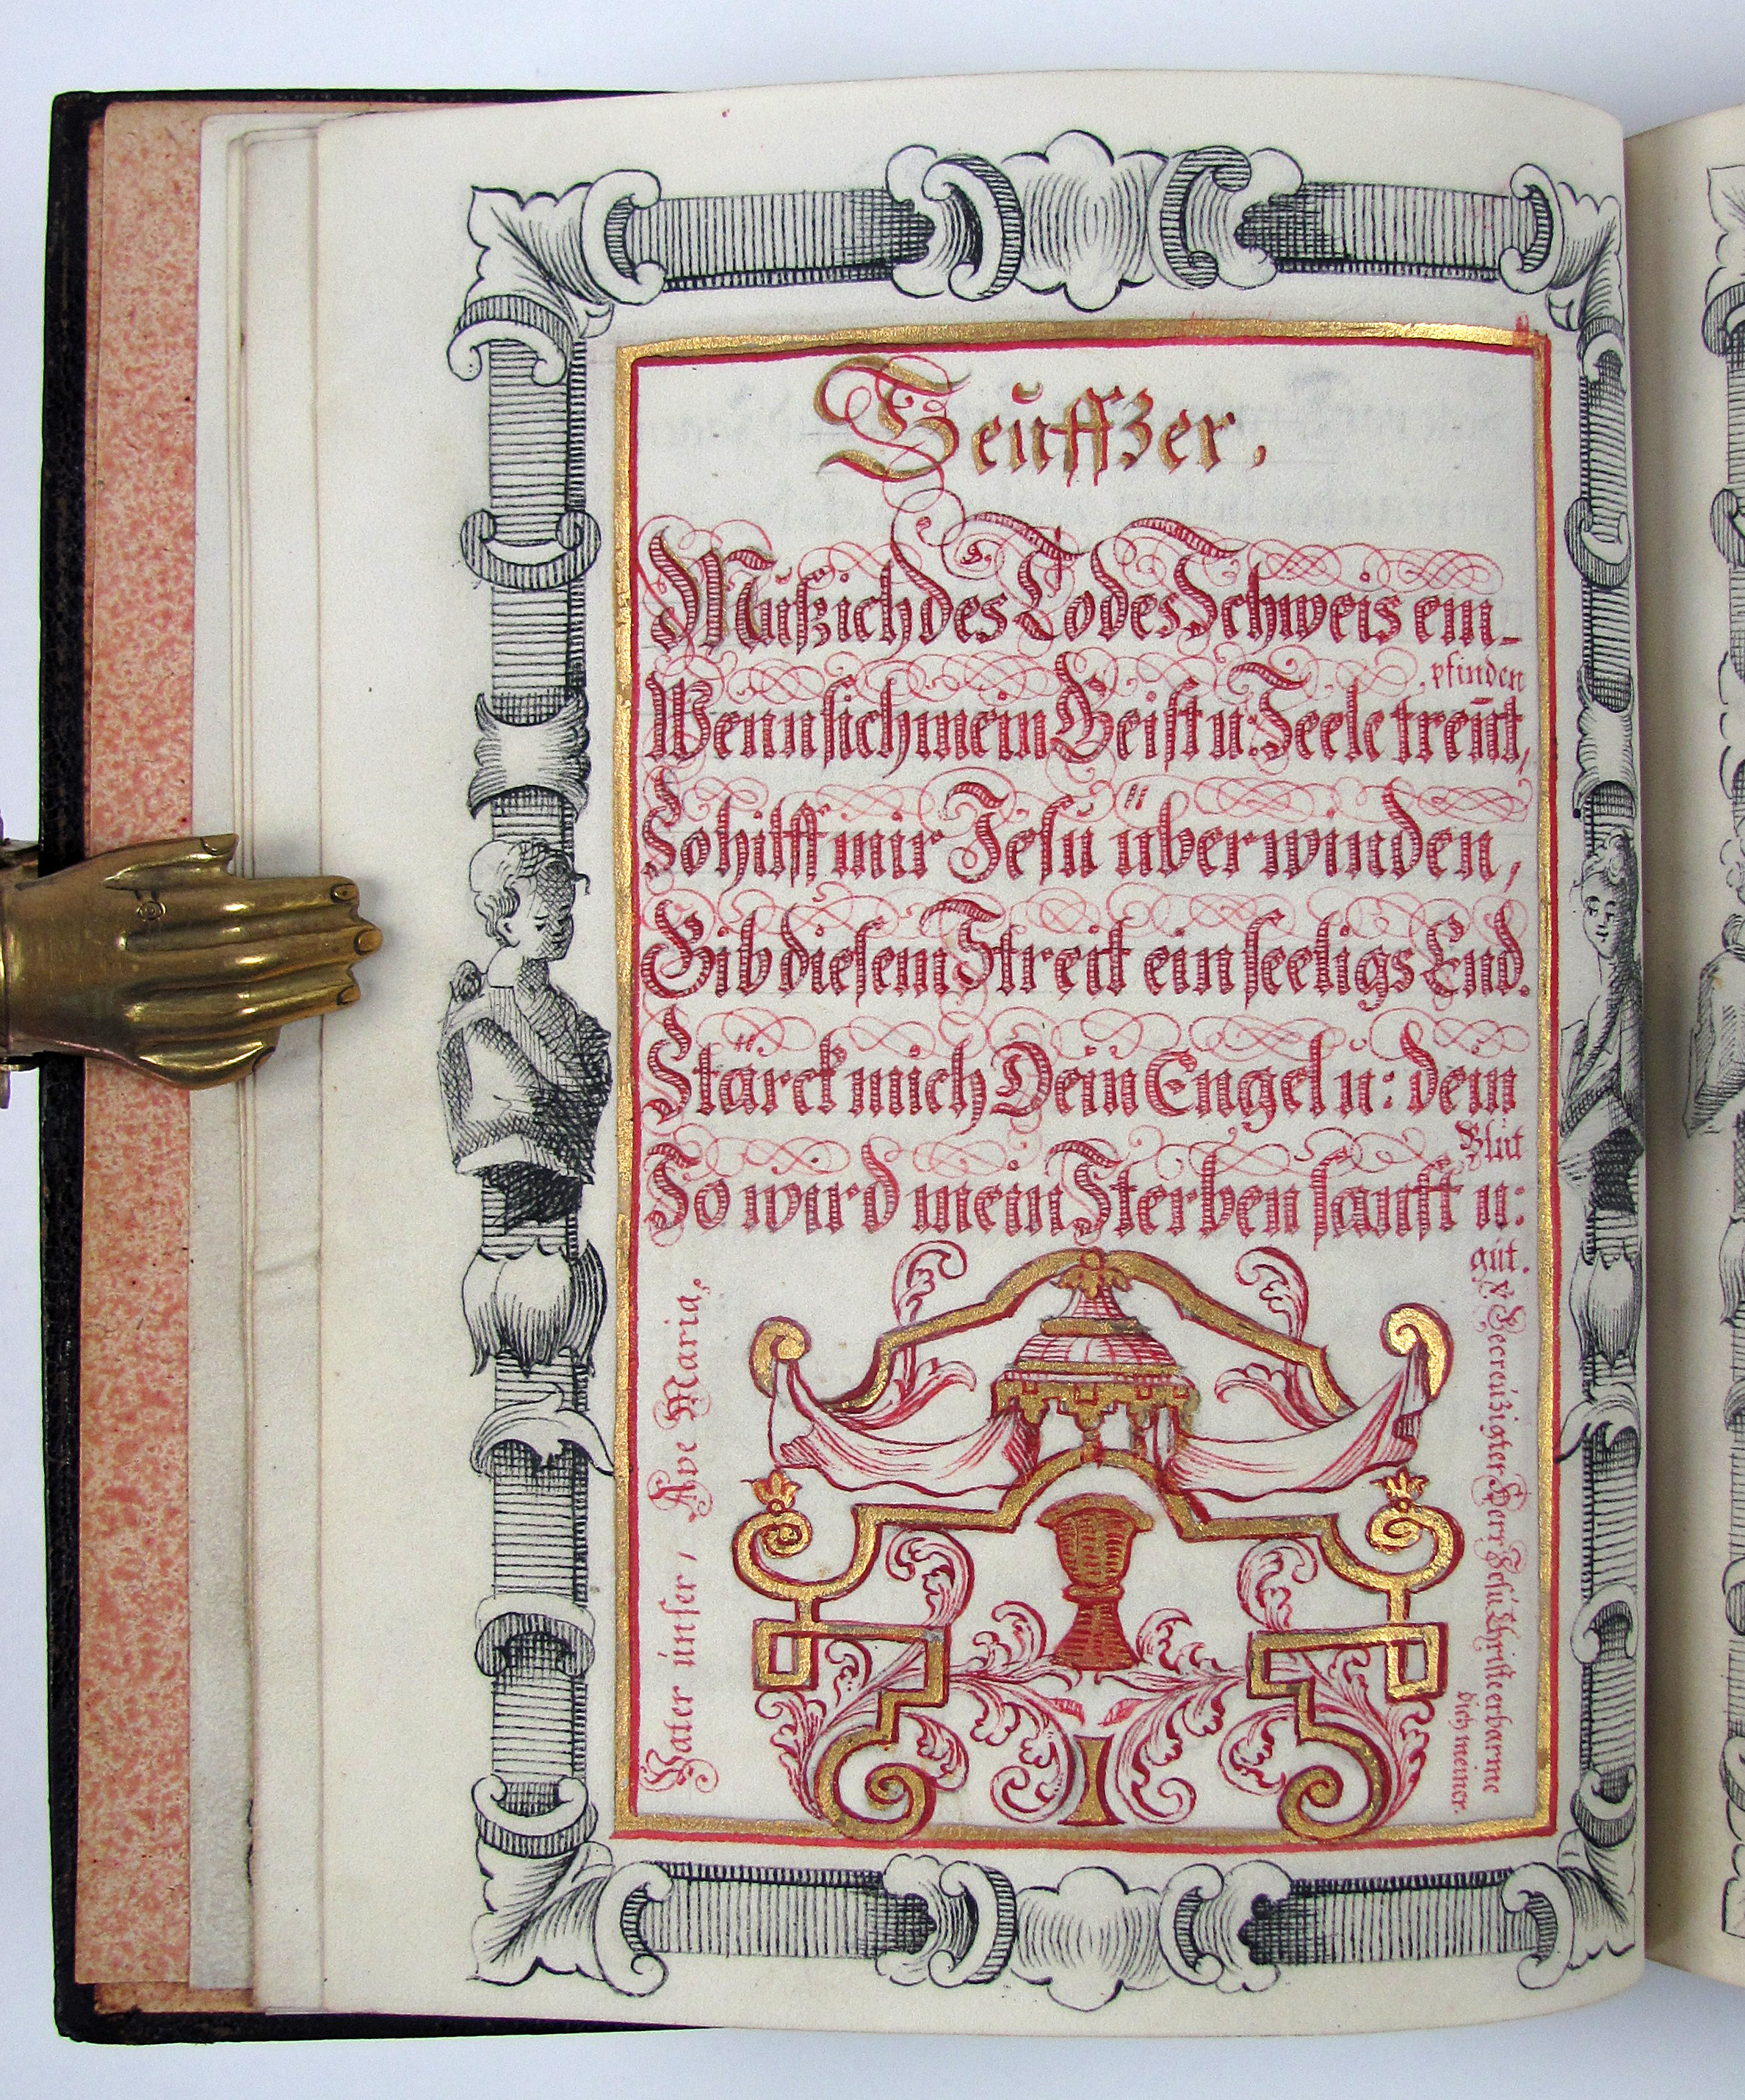 Seŭffzer.
Mŭß ich des Todes Schweis em-
pfinden
Wenn sich mein Geist ŭ: Seele treñt,
So hilff mir Jesŭ überwinden,
Gib diesem Streit ein seeligs End.
Stärck mich Dein Engel ŭ: dein
Blŭt
So wird mein Sterben sanfft ŭ:
gŭt.
Vater ŭnser, Ave Maria,
Gecreŭzigter Herr Jesŭ Christe erbarme
dich meiner.